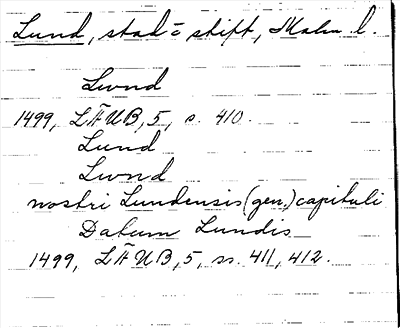 Lund, stad o stift, Malm. l.
Lwnd
1499, LÄUB, 5, s. 410.
Lund
Lwnd
nostri Lundensis (gen.) capituli
Datum Lundis
1499, LÄUB, 5, ss. 411, 412.